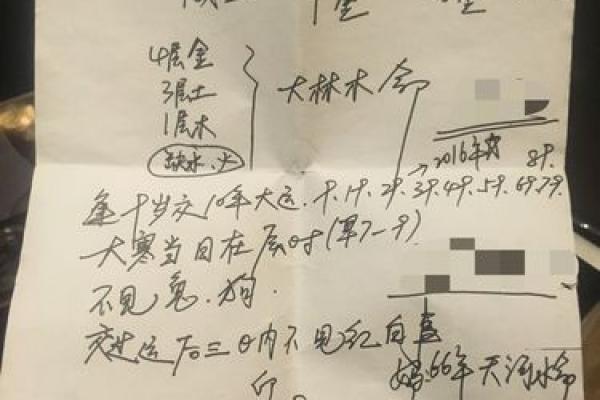 4层金
3层土
1层木
缺水、火
大林木命
2016年交
每十岁交10年大运.十.1十.2十.3十.4十.5十.6十.7十.
8十.
大寒当日在辰时(早7—9)
不见兔.狗.
交过运后三日内不见红白喜
妈:66年天河水命